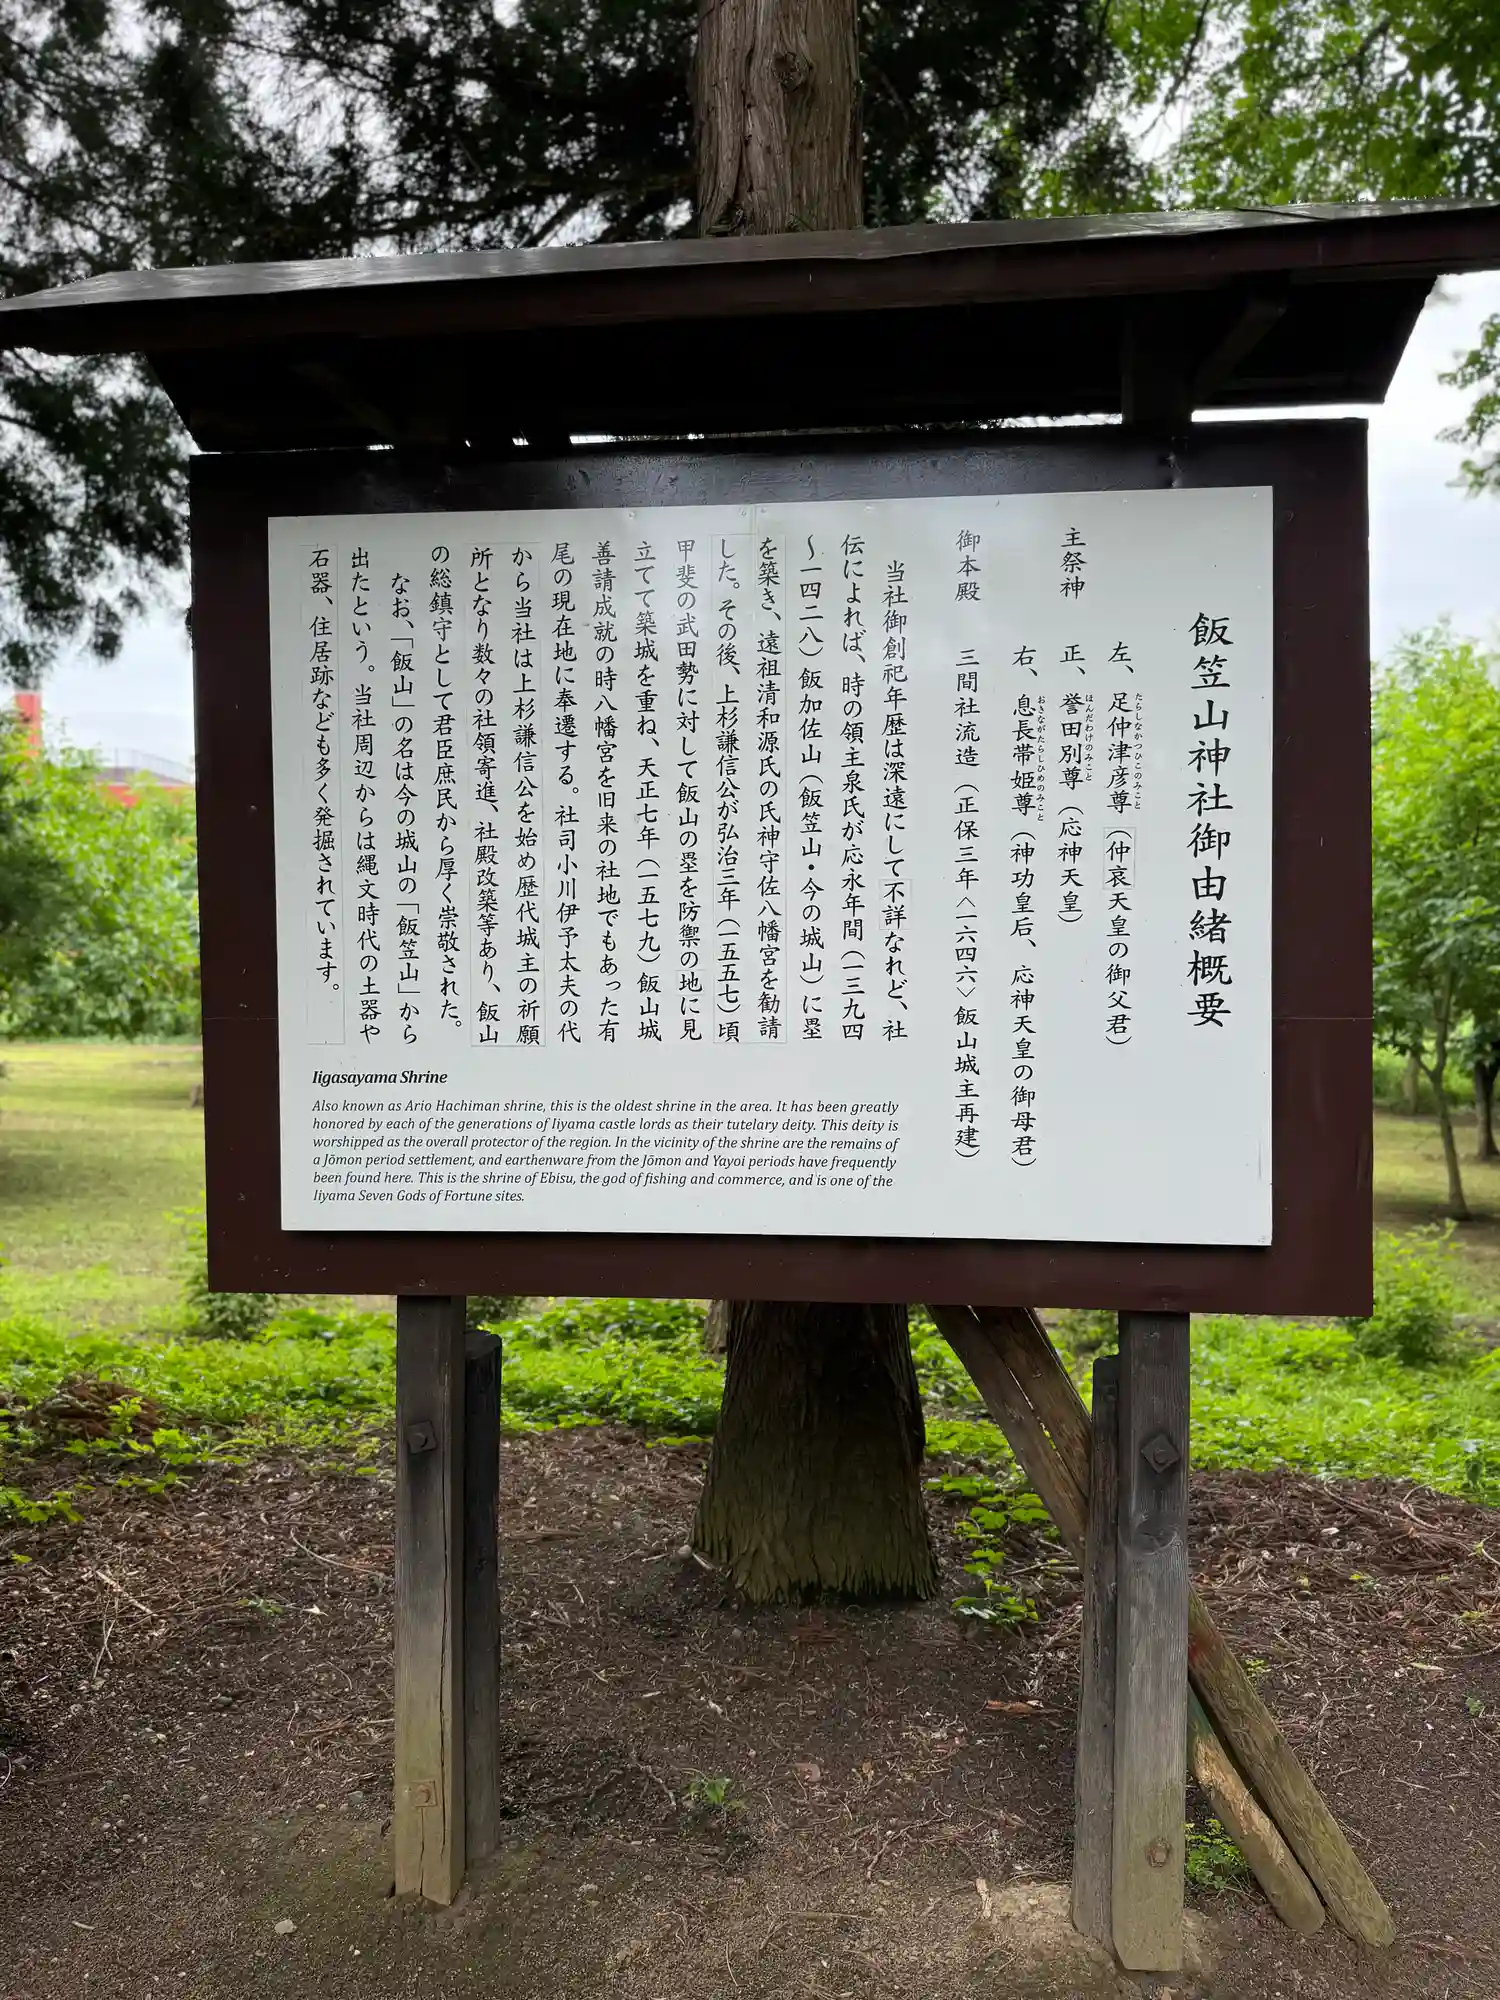 飯笠山神社御由緒概要
左、足仲津彦尊（仲哀天皇の御父君）
たらしなかつひこのみこと
主祭神　正、誉田別尊（応神天皇）
ほんだわけのみこと
右、息長帯姫尊（神功皇后、応神天皇の御母君）
おきながたらしひめのみこと
御本殿　三間社流造（正保三年＜一六四六＞飯山城主再建）
当社御創祀年歴は深遠にして不詳なれど、社
伝によれば、時の領主泉氏が応永年間（一三九四
～一四二八）飯加佐山（飯笠山・今の城山）に塁
を築き、遠祖清和源氏の氏神守佐八幡宮を勧請
した。その後、上杉謙信公が弘治三年（一五五七）頃
甲斐の武田勢に対して飯山の塁を防禦の地に見
立てて築城を重ね、天正七年（一五七九）飯山城
善請成就の時八幡宮を旧来の社地でもあった有
尾の現在地に奉遷する。社司小川伊予太夫の代
から当社は上杉謙信公を始め歴代城主の祈願
所となり数々の社領寄進、社殿改築等あり、飯山
の総鎮守として君臣庶民から厚く崇敬された。
なお、「飯山」の名は今の城山の「飯笠山」から
出たという。当社周辺からは縄文時代の土器や
石器、住居跡なども多く発掘されています。
Iigasayama Shrine
Also known as Ario Hachiman shrine, this is the oldest shrine in the area. It has been greatly
honored by each of the generations of Iiyama castle lords as their tutelary deity. This deity is
worshipped as the overall protector of the region. In the vicinity of the shrine are the remains of
a Jōmon period settlement, and earthenware from the Jōmon and Yayoi periods have frequently
been found here. This is the shrine of Ebisu, the god of fishing and commerce, and is one of the
Iiyama Seven Gods of Fortune sites.